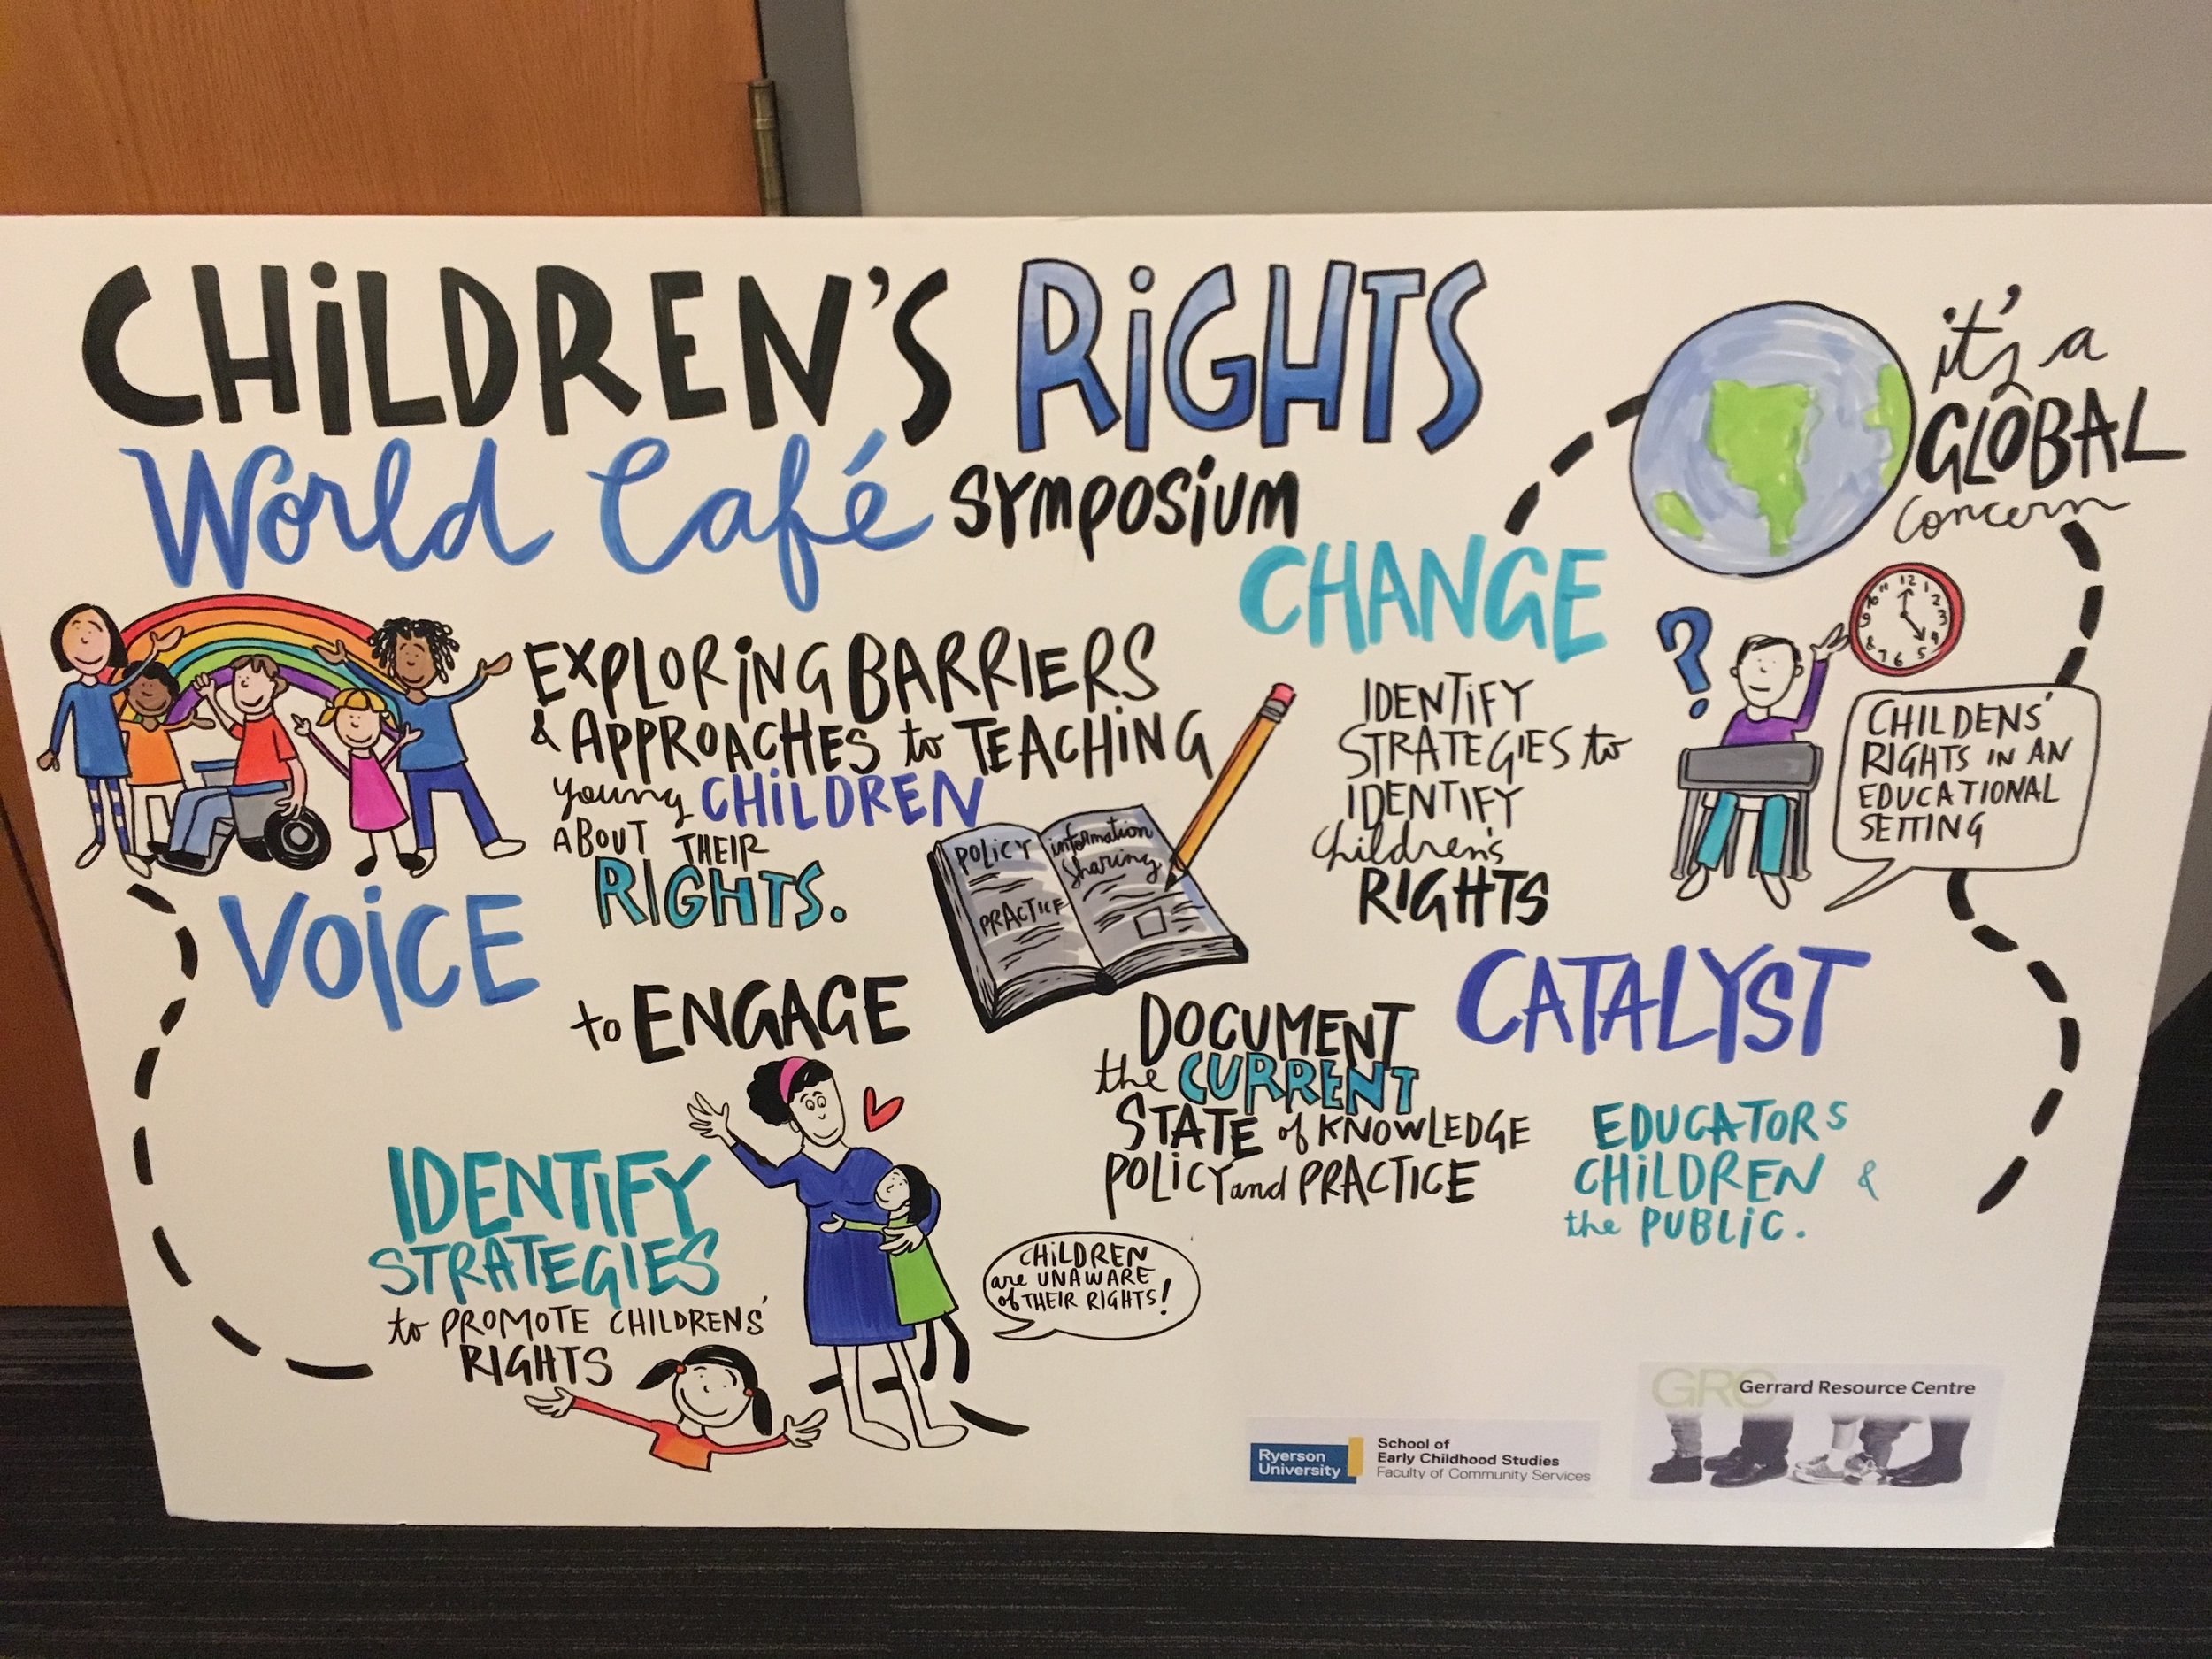 CHiLDREN'S RiGHTS
World Café SYMPOSiUM
it's a
GLOBAL
concern
CHANGE
EXPLORiNG BARRIERS
& APPROACHES to TEACHiNG
young CHiLDREN
ABOUT THEIR
RIGHTS.
VOiCE
POLICY
PRACTICE
information
sharing
IDENTiFY
STRATEGIES to
IDENTIFY
children's
RIGHTS
?
12 1 2 3 4 5 6 7 8 9 10 11
CHILDENS'
RIGHTS IN AN
EDUCATIONAL
SETTING
to ENGAGE
CATALYST
DOCUMENT
the CURRENT
STATE of KNOWLEDGE
POLICY and PRACTICE
EDUCATORS
CHiLDREN &
the PUBLiC.
IDENTiFY
STRATEGIES
to PROMOTE CHILDRENS'
RIGHTS
CHiLDREN
are UNAWARE
of THEIR RIGHTS!
Ryerson
University
School of
Early Childhood Studies
Faculty of Community Services
GRC
Gerrard Resource Centre